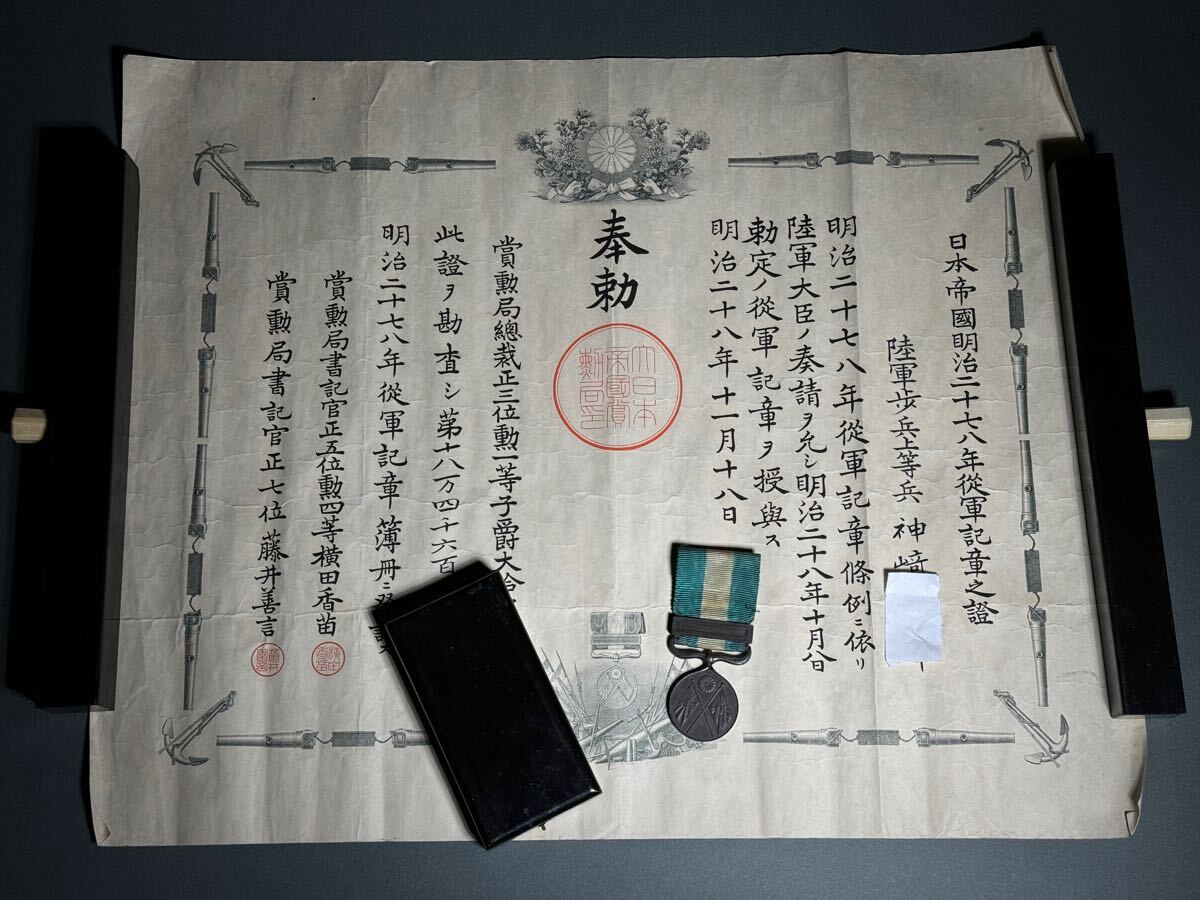 日本帝國明治二十七八年從軍記章之證
陸軍歩兵上等兵 神﨑
明治二十七八年從軍記章條例ニ依リ
陸軍大臣ノ奏請ヲ允シ明治二十八年十月八日
勅定ノ從軍記章ヲ授與ス
明治二十八年十一月十八日
奉勅
大日本
帝國賞
勲局印
賞勲局總裁正三位勲一等子爵大給
此證ヲ勘査シ第十八万四千六百
明治二十七八年從軍記章簿冊ニ
賞勲局書記官正五位勲四等横田香苗
賞勲局書記官正七位藤井善言